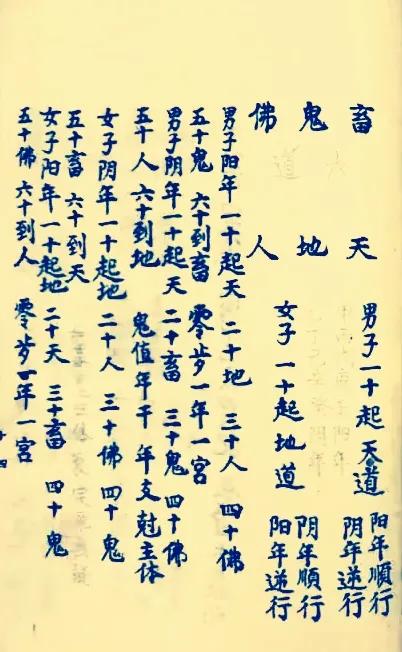 畜 鬼 佛
天 地 人
男子一十起天道 阳年順行
阴年逆行
女子一十起地道 阴年順行
阳年逆行
男子阳年一十起天 二十地 三十人 四十佛
五十鬼 六十到畜 零岁一年一宫
男子阴年一十起天 二十畜 三十鬼 四十佛
五十人 六十到地 鬼值年干 年支尅主体
女子阴年一十起地 二十人 三十佛 四十鬼
五十畜 六十到天
女子阳年一十起地 二十天 三十畜 四十鬼
五十佛 六十到人 零岁一年一宫
十四